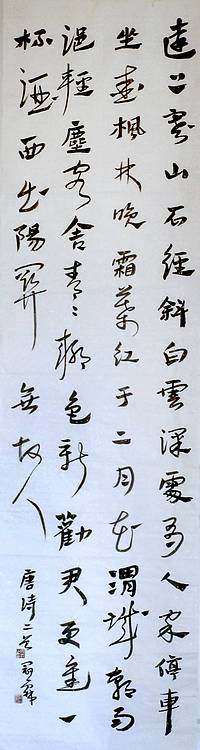 遠上寒山石徑斜白雲深處有人家停車
坐愛楓林晚霜葉紅于二月花渭城朝雨
浥輕塵客舍青々柳色新勸君更進一
杯酒西出陽關無故人
唐詩二首